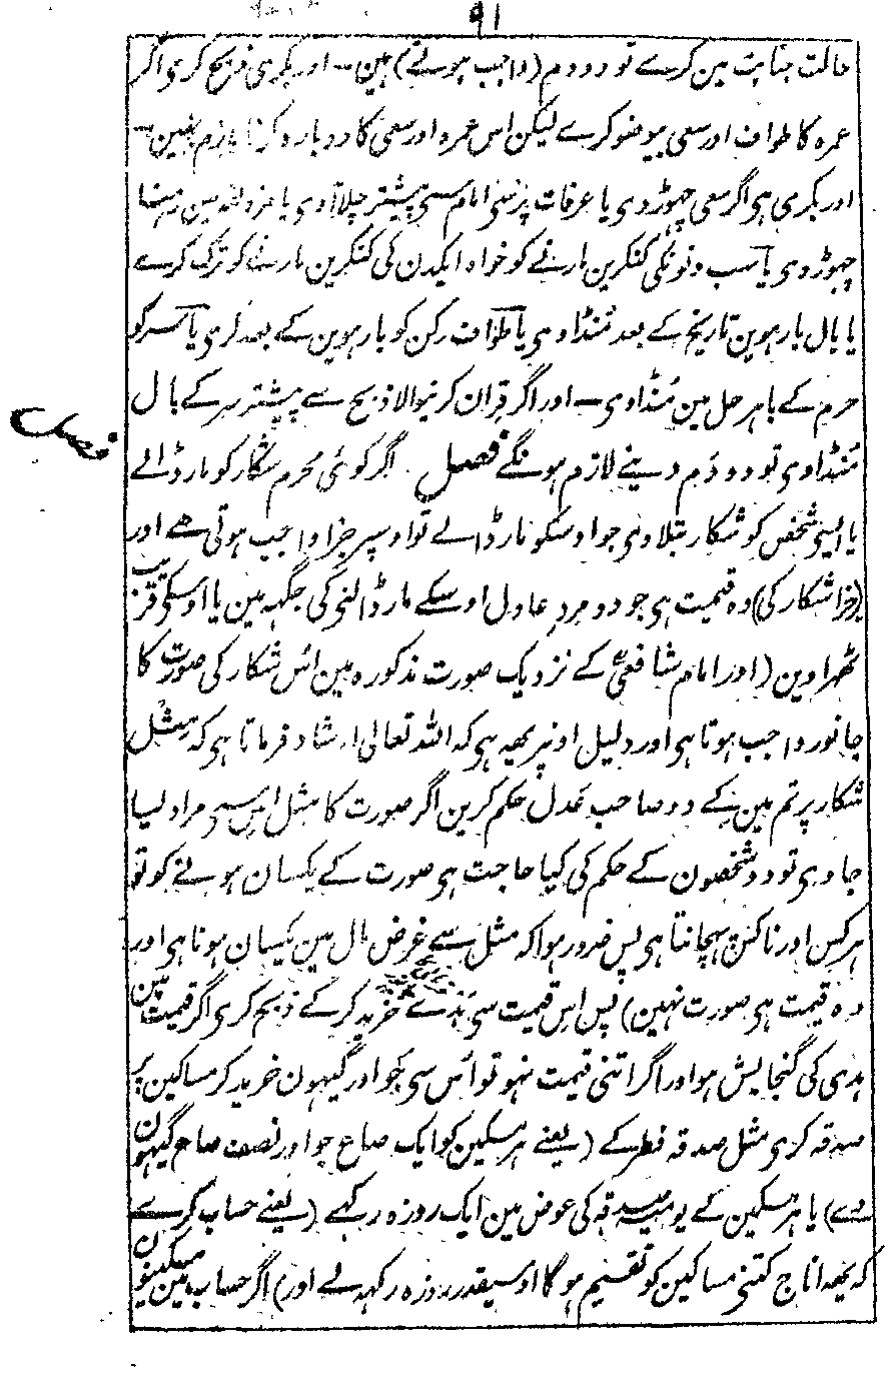 ۹۱
حالت جنابت مین کرے تو دو دم (واجب ہوتے) ہین۔ اور بکری ذبح کری اگر
عمرہ کا طواف اور سعی بیوضو کرے لیکن اس عمرہ اور سعی کا دوبارہ کرنا لازم نہین۔
اور بکری ہی اگر سعی چھوڑ دی یا عرفات پر سی امام سی پیشتر چلا آوی یا مزدلفہ مین نہ رہنا
چھوڑ دی یا سب دنونکی کنکرین مارنے کو خواہ ایکدن کی کنکرین مارنے کو ترک کرے
یا بال بارہوین تاریخ کے بعد منڈاوی یا طواف رکن کو بارہوین کے بعد کری یا سر کو
حرم کے باہر حل مین مُنڈاوی۔ اور اگر قران کرنیوالا ذبح سے پیشتر سر کے بال
مُنڈاوی تو دو دَم دینے لازم ہونگے فصل اگر کوئی مُحرم شکار کو مار ڈالے
فصل
یا ایسی شخص کو شکار بتلاوی جو اوسکو مار ڈالے تو اوسپر جزا واجب ہوتی ہے اور
(جزا شکار کی) وہ قیمت ہی جو دو مرد عادل اوسکے مار ڈالنی کی جگہہ مین یا اوسکی قریب
ٹھراوین (اور امام شافعیؒ کے نزدیک صورت مذکورہ مین اُس شکار کی صورت کا
جانور واجب ہوتا ہی اور دلیل اونپر یھہ ہی کہ اللہ تعالیٰ ارشاد فرماتا ہی کہ مِثل
شکار پر تم مین کے دو صاحب عَدل حکم کرین اگر صورت کا مثل اِس سی مراد لیا
جاوی تو دو شخصون کے حکم کی کیا حاجت ہی صورت کے یکسان ہونے کو تو
ہر کس اور ناکس پہچانتا ہی پس ضرور ہوا کہ مثل سے غرض مال مین یکسان ہونا ہی اور
وہ قیمت ہی صورت نہین) پس اِس قیمت سی ہَدی خرید کر کے ذبح کری اگر قیمت مین
ہدی کی گنجایش ہو اور اگر اتنی قیمت نہو تو اُس سی جَو اور گیہون خرید کر مساکین پر
صدقہ کری مثل صدقہ فطر کے (یعنے ہر مسکین کو ایک صاع جو اور نصف صاع گیہون
دے) یا ہر مسکین کے یومیہ صدقہ کی عوض مین ایک روزہ رکھے (یعنے حساب کرے
کہ یھہ اناج کتنی مساکین کو تقسیم ہوگا اوسیقدر روزہ رکھہ لے اور) اگر حساب مین مسکینون